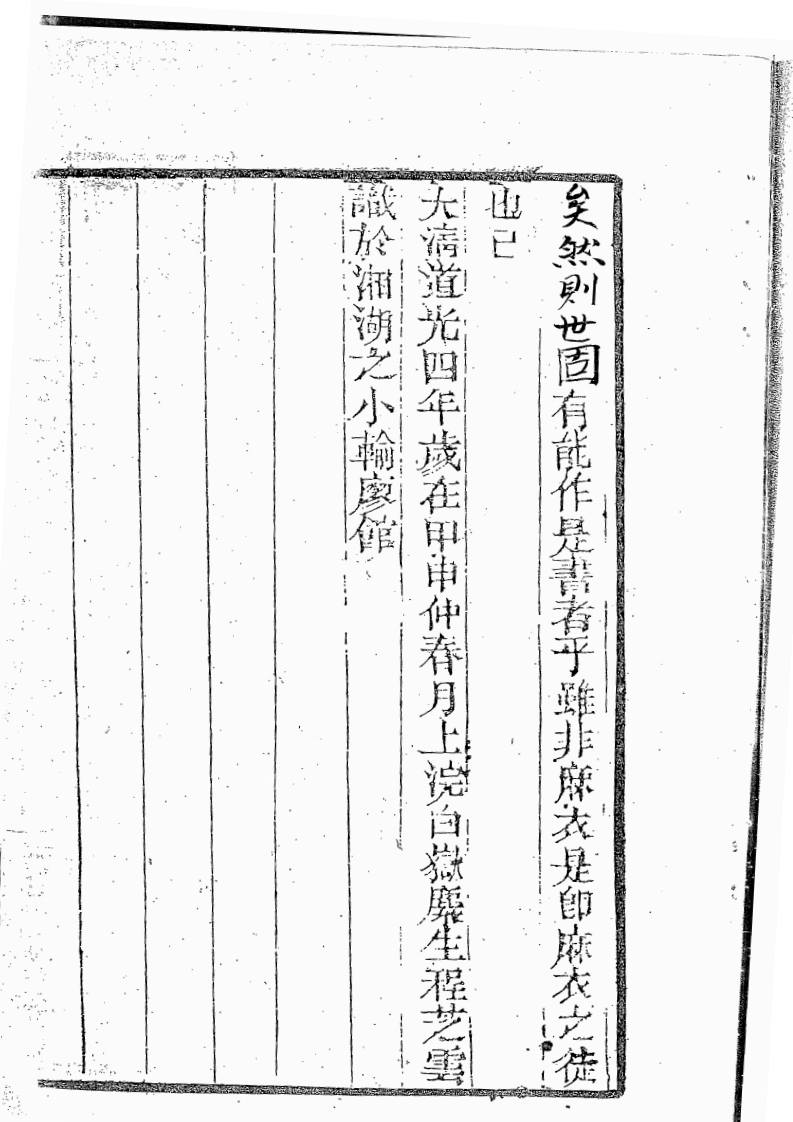 矣然則世固有能作是書者乎雖非麻衣是卽麻衣之徒
也已
大淸道光四年歲在甲申仲春月上浣白嶽麐生程芝雲
識於湘湖之小輪廖館